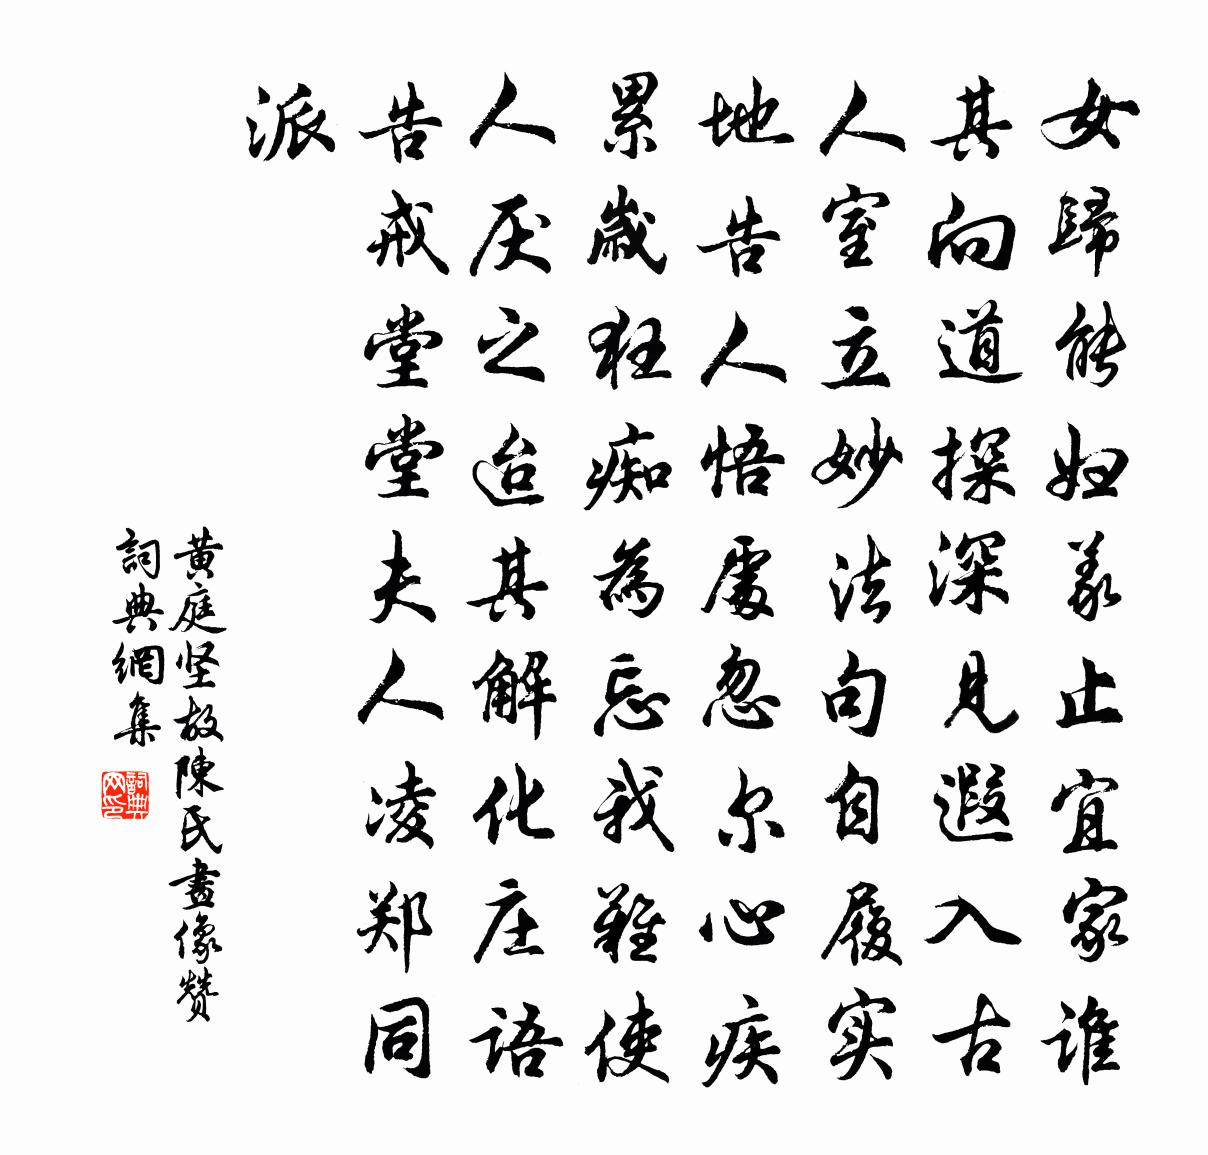 女歸能妇义止宜家谁
其向道探深見遐入古
人室立妙法句自履实
地告人悟處忽尔心疾
累歲狂痴為忘我難使
人厌之迨其解化庄语
告戒堂堂夫人凌郑同
派
黄庭坚故陳氏畫像赞
詞典網集
詞典网印